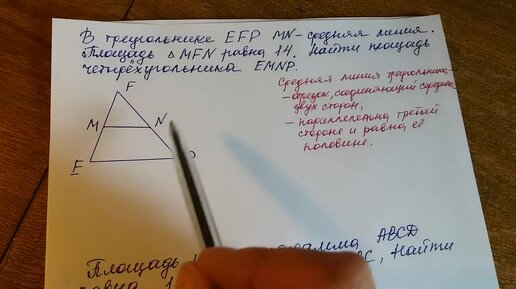 В треугольнике EFP MN - средняя линия.
Площадь △ MFN равна 14. Найти площадь
четырёхугольника EMNP.
Средняя линия треугольника
- отрезок, соединяющий середины
двух сторон;
- параллельна третьей
стороне и равна её
половине.
F
M
N
E
Площадь ABCD
равна 1 Найти